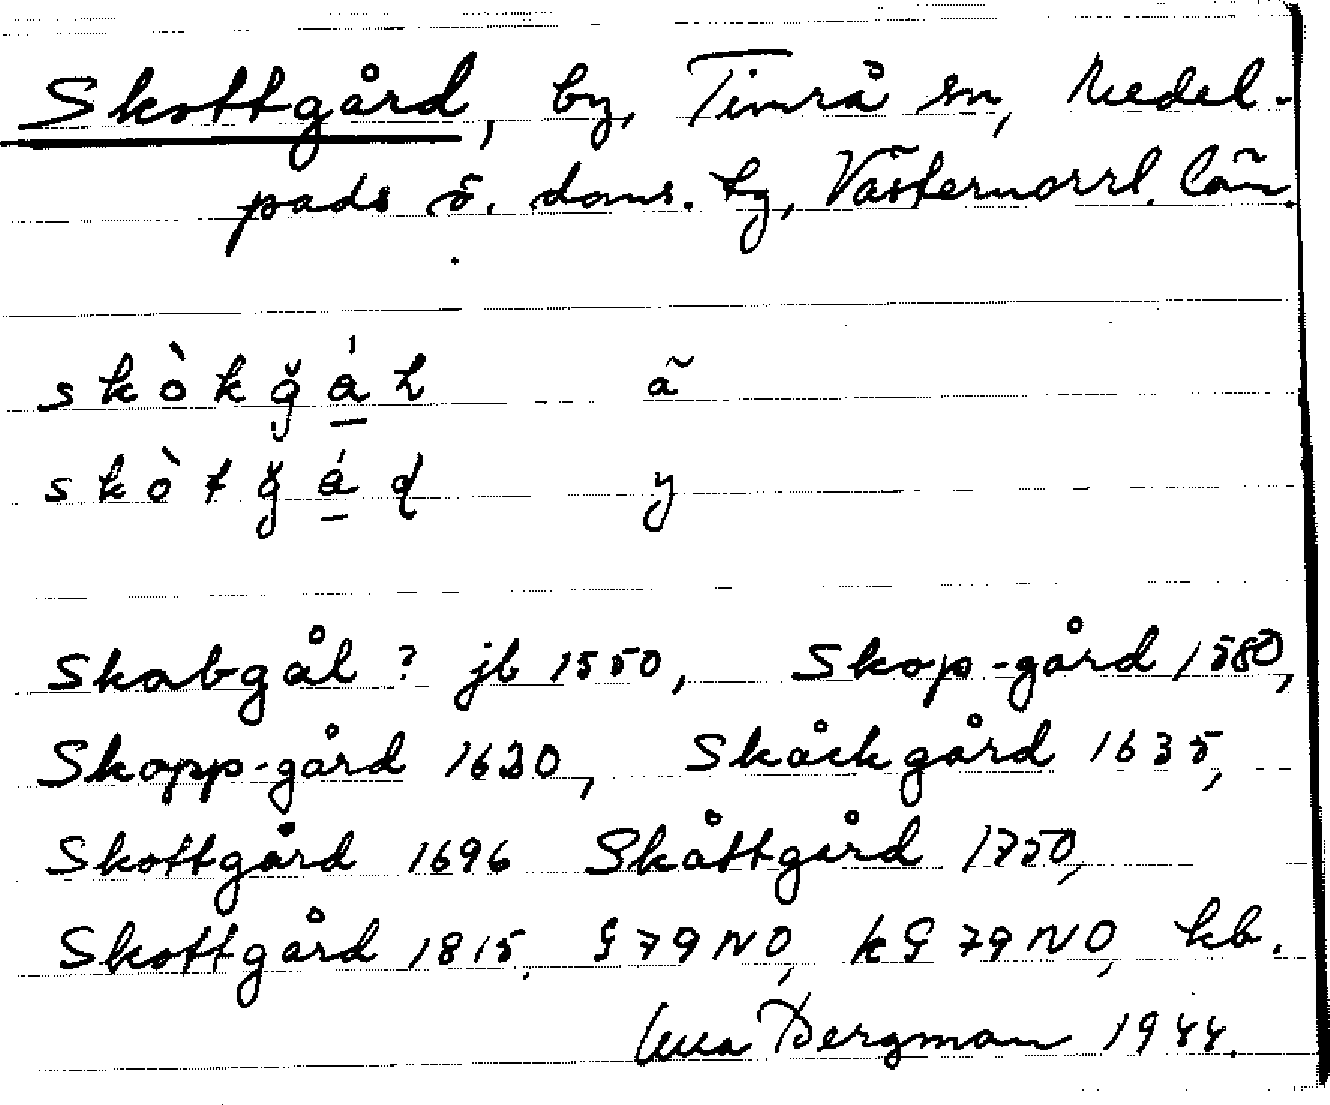 Skottgård, by, Timrå sn, Medel-
pads ö. doms. tg, Västernorrl. län.
skòkğáL ä
skòtğáḍ y
Skabgål ? jb 1550, Skop-gård 1580,
Skopp-gård 1620, Skåckgård 1635,
Skottgård 1696 Skåttgård 1750,
Skottgård 1815. G 79 NO, kG 79 NO, kb.
Bergman 1944.